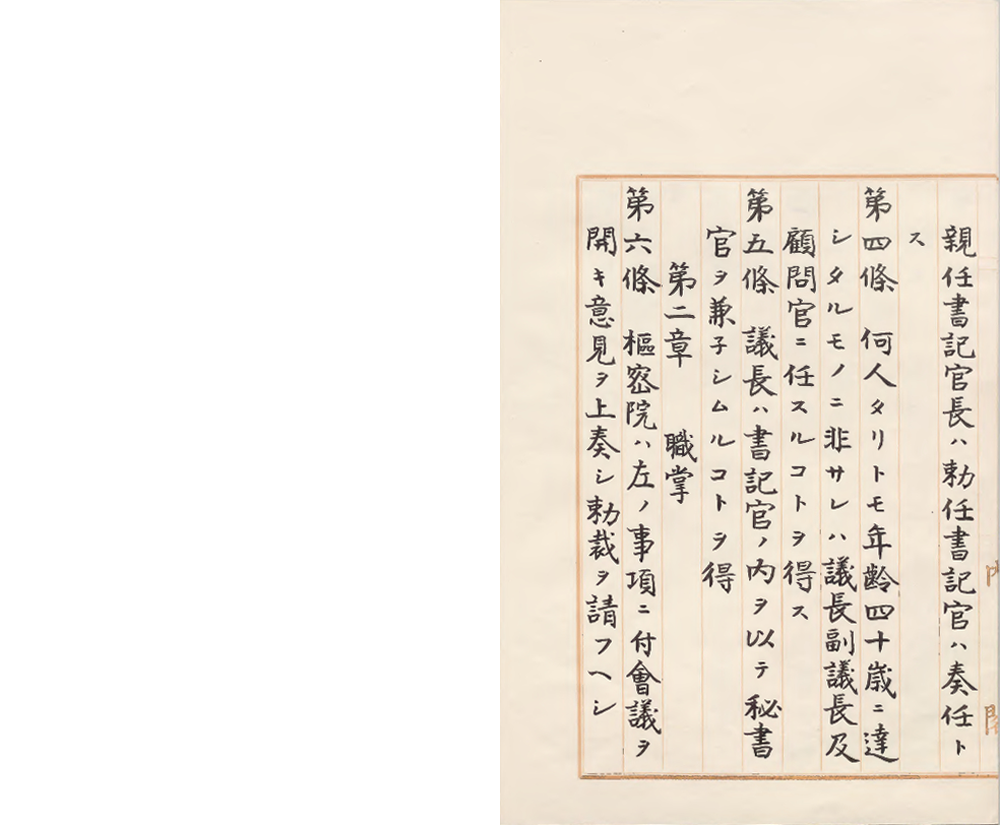 親任書記官長ハ勅任書記官ハ奏任ト
ス
第四條　何人タリトモ年齡四十歳ニ達
シタルモノニ非サレハ議長副議長及
顧問官ニ任スルコトヲ得ス
第五條　議長ハ書記官ノ內ヲ以テ秘書
官ヲ兼子シムルコトヲ得
第二章　職掌
第六條　樞密院ハ左ノ事項ニ付會議ヲ
開キ意見ヲ上奏シ勅裁ヲ請フヘシ